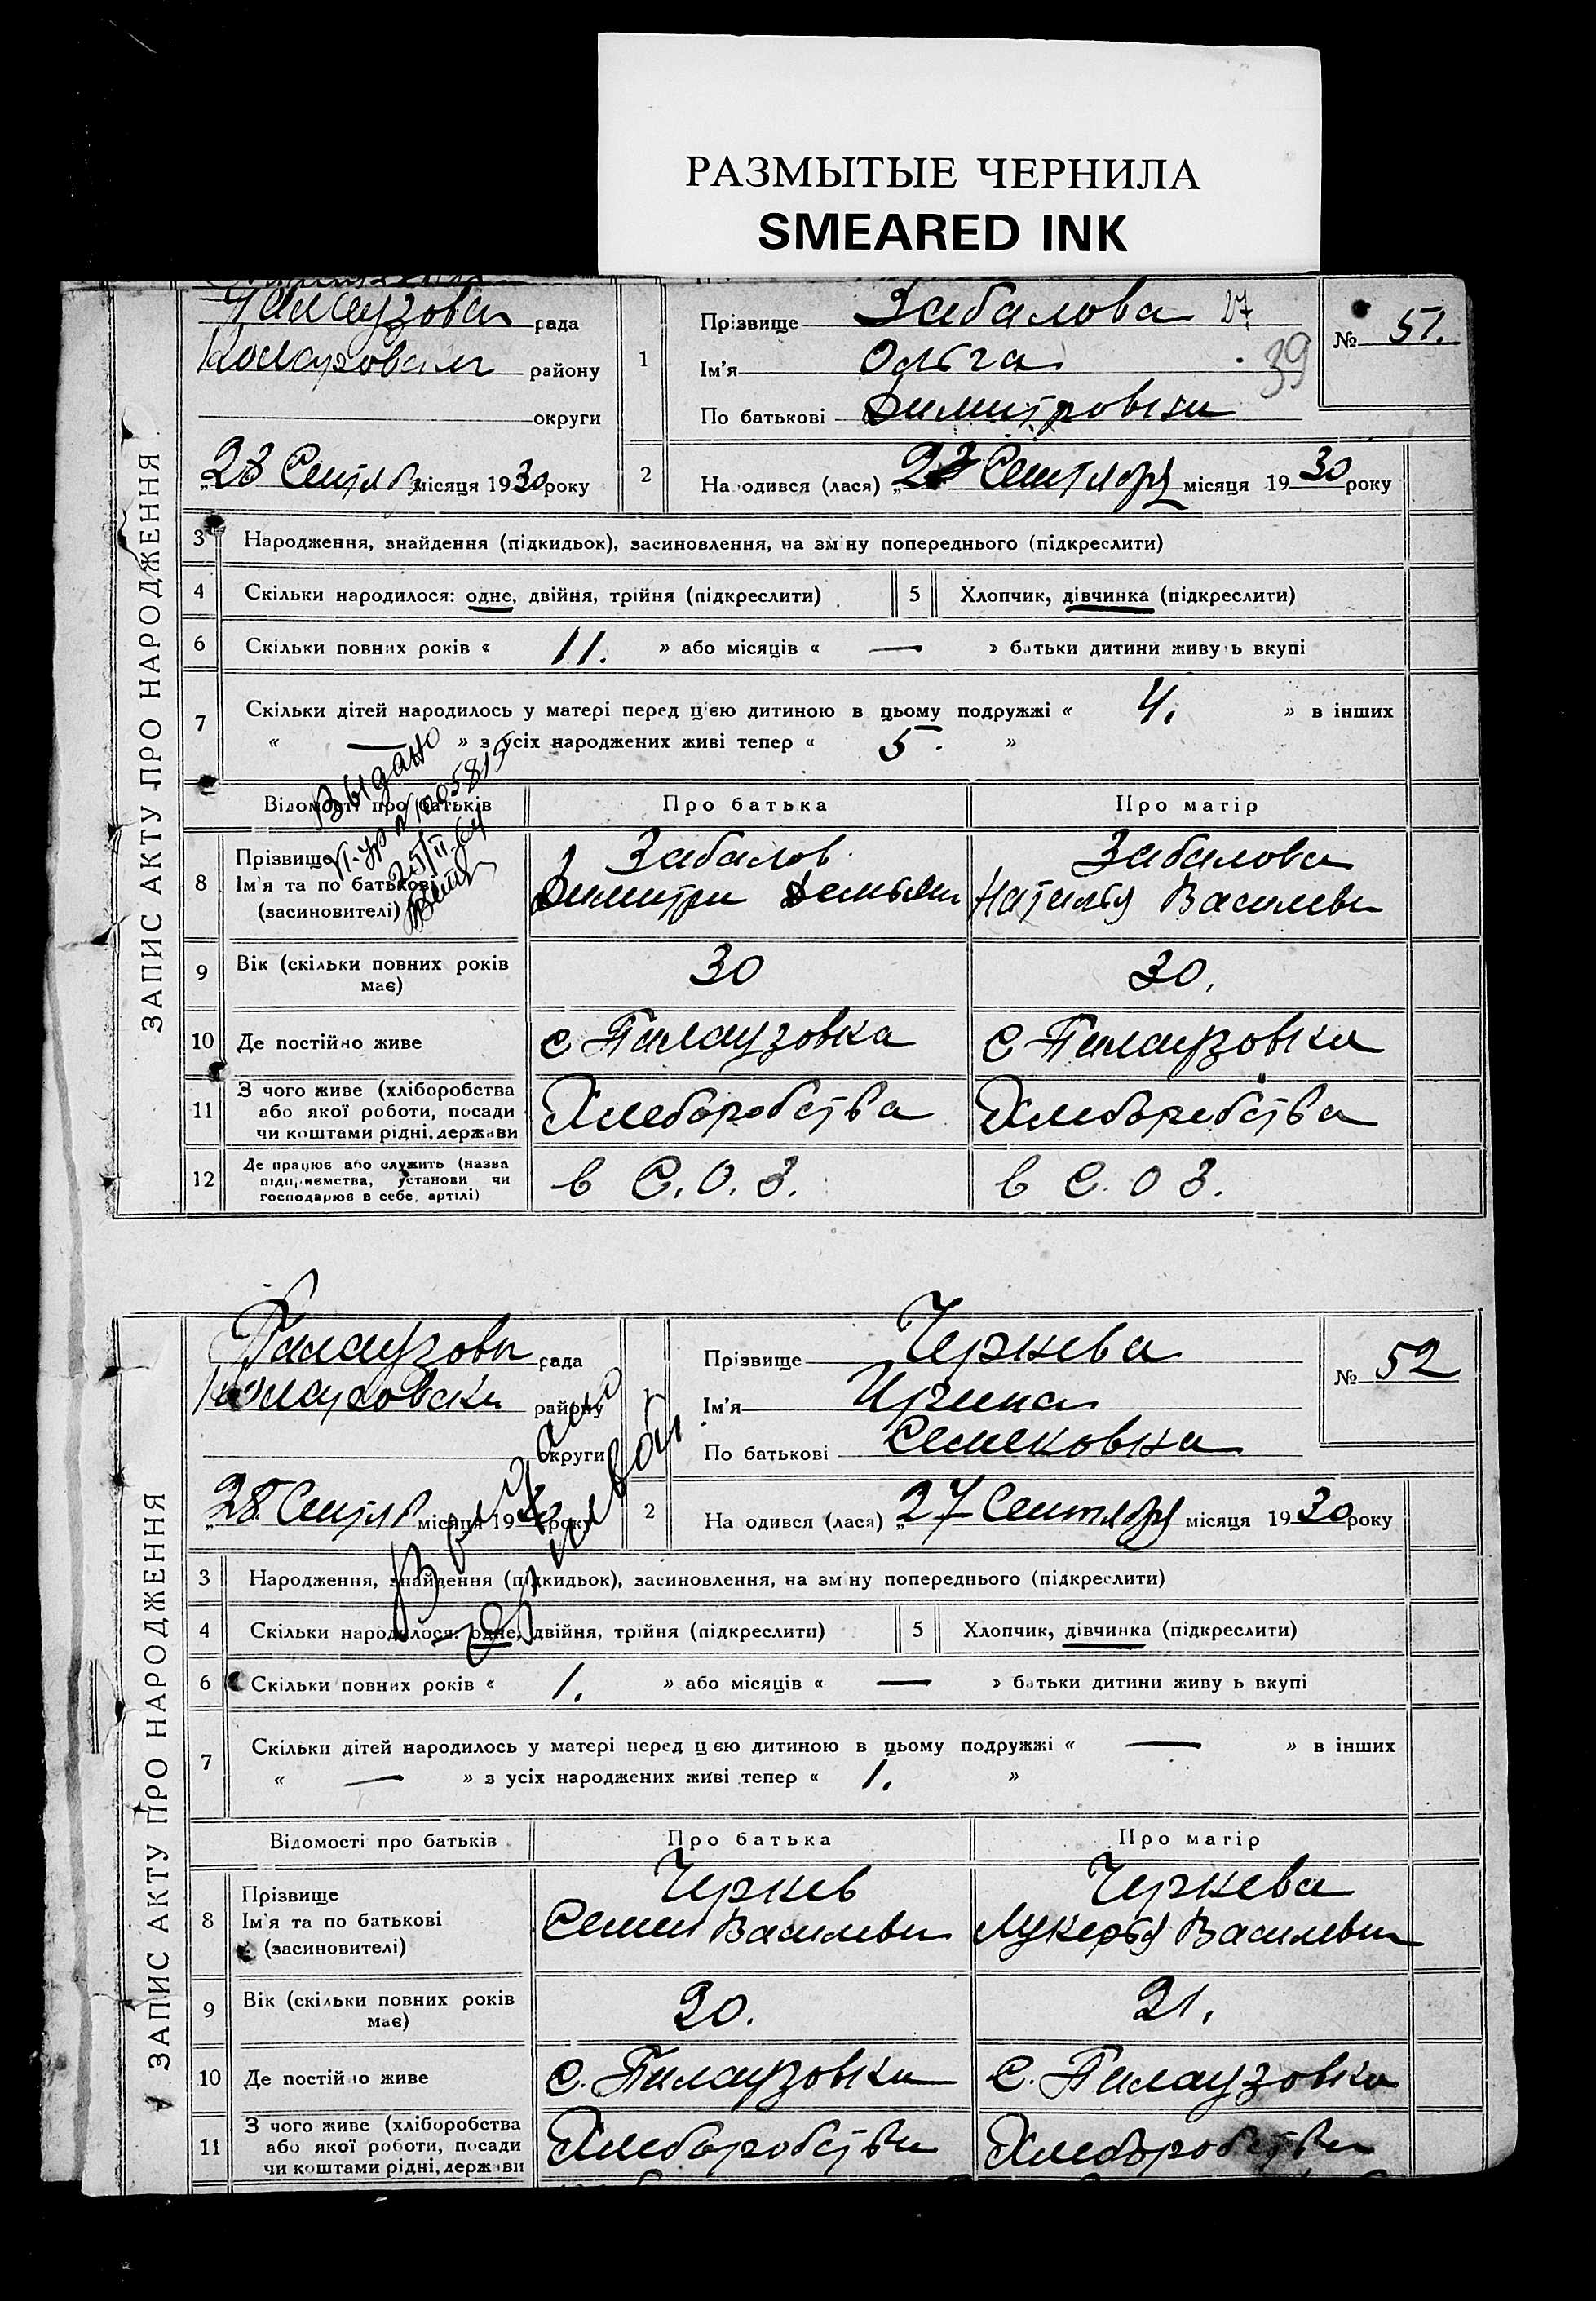 РАЗМЫТЫЕ ЧЕРНИЛА
SMEARED INK
ЗАПИС АКТУ ПРО НАРОДЖЕННЯ
рада
району
округи
„23 Сентяб місяця 1930 року
1 Прізвище Забалова 27
Ім'я Ольга 39
По батькові Димитровна
№ 51.
2 На одився (лася) „ Сентября місяця 1930 року
3 Народження, знайдення (підкидьок), засиновлення, на зміну попереднього (підкреслити)
4 Скільки народилося: одне, двійня, трійня (підкреслити) 5 Хлопчик, дівчинка (підкреслити)
6 Скільки повних років « 11. » або місяців « — » батьки дитини живуть вкупі
7 Скільки дітей народилось у матері перед цією дитиною в цьому подружжі « 4. » в інших
« — » з усіх народжених живі тепер « 5. »
Выдано
25/II-64
Відомості про батьків Про батька Про матір
8 Прізвище Забалов Забалова
Ім'я та по батькові Димитри Демьян Наталья Василевн
(засиновителі)
9 Вік (скільки повних років має) 30 30.
10 Де постійно живе с Палаузовка с Палаузовка
11 З чого живе (хліборобства або якої роботи, посади чи коштами рідні, держави Хлеборобства Хлеборобства
12 Де працює або служить (назва підприємства, установи чи господарює в себе, артілі) в С.О.З. в С.О З.
ЗАПИС АКТУ ПРО НАРОДЖЕННЯ
Палаузовк рада
району
округи
„28 Сентяб місяця 19 року
Прізвище Черкева
Ім'я Ирина
По батькові Семековна
№ 52
2 На одився (лася) „27 Сентября місяця 1930 року
3 Народження, знайдення (підкидьок), засиновлення, на зміну попереднього (підкреслити)
4 Скільки народилося: одне, двійня, трійня (підкреслити) 5 Хлопчик, дівчинка (підкреслити)
6 Скільки повних років « 1. » або місяців « — » батьки дитини живу ь вкупі
7 Скільки дітей народилось у матері перед цією дитиною в цьому подружжі « — » в інших
« — » з усіх народжених живі тепер « 1. »
Відомості про батьків Про батька Про матір
8 Прізвище Черкев Черкева
Ім'я та по батькові Семен Василеви Лукерья Василевн
(засиновителі)
9 Вік (скільки повних років має) 20. 21.
10 Де постійно живе с. Палаузовка с. Палаузовка
11 З чого живе (хліборобства або якої роботи, посади чи коштами рідні, держави Хлеборобства Хлеборобства